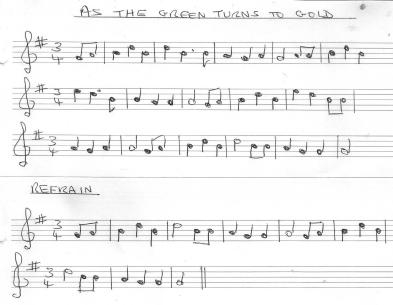 AS THE GREEN TURNS TO GOLD
3
4
3
4
3
4
REFRAIN
3
4
3
4